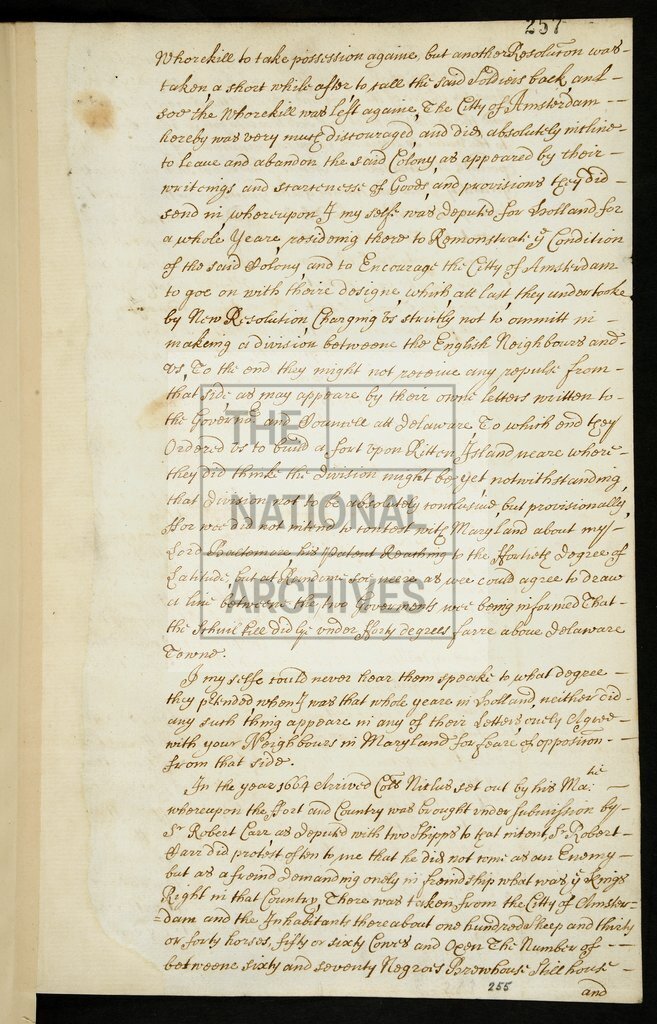 257
Whorekill to take possession againe, but another Resoluton was
taken a short while after to call the said Soldiers back, and
soe the Whorekill was left againe, The Citty of Amsterdam
hereby was very much discouraged, and did absolutely incline
to Leave and abandon the said Colony as appeared by their
writeings and scarcenesse of Goods, and provisions they did
send in, whereupon I my selfe was deputed for Holland for
a whole Yeare, resideing there to Remonstrate ye Condition
of the said Colony, and to Encourage the Citty of Amsterdam
to goe on with theire designe, which att last they undertooke
by New Resolution, Charging us strictly not to ommitt in
makeing a division betweene the English Neighbours and
us, To the end they might not receive any repulse from
that side, as may appeare by their owne letters written to
the Governor and Councell att Delaware To which end they
Ordered us to build a fort upon Ritton Island neare where
they did thinke the division might be, yet notwithstanding
that division not to be absolutely conclusive, but provisionally
ffor wee did not intend to contest with Maryland about my
Lord Baltemore his Patent Reaching to the ffortieth Degree of
Latitude, but at Random soe neere, as wee could agree to draw
a line betweene the two Goverments, wee being informed That
the Schuil kill did lye under fforty degrees farre above Delaware
Towne.
I my selfe could never hear them speake to what degree
they ptended, when I was that whole yeare in Holland, neither did
any such thing appeare in any of their Letters, onely Agree
with your Neighbours in Maryland for feare of opposition
from that side.
In the year 1664 Arrived Coll Niclus set out by his Matie
whereupon the Fort and Country was brought under submission by
Sr Robert Carr as deputed with two Shipps to that intent, Sr Robert
Carr did protest often to me that he did not come as an Enemy
but as a freind demanding onely in freindship what was ye Kings
Right in that Country, There was taken from the Citty of Amster=
=dam and the Inhabitants thereabout one hundred Sheep and thirty
or forty horses, fifty or sixty Cowes and Oxen The Number of
betweene sixty and seventy Negroes Brewhouse Stillhouse
and
255
THE
NATIONAL
ARCHIVES